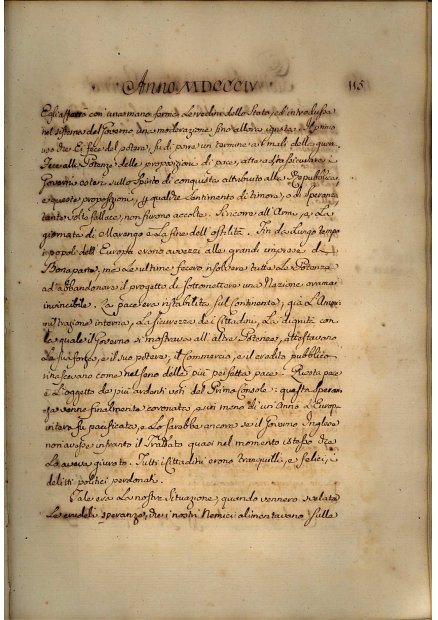 Anno MDCCCIV 115
Egli afferrò con una mano ferma le redini dello Stato, ed introdusse
nel sistema del Governo una moderazione fino allora ignota. Il primo
uso che Ei fece del potere, fù di porre un termine ai mali della guerra.
Fece alle Potenze delle proposizioni di pace, atte a disinscurare i
Governi esteri sullo spirito di conquista attribuito alla Repubblica,
e queste proposizioni, per qualche sentimento di timore, o di speranze
tanto solo fallace, non furono accolte. Ricorse all'Armi, e la
giornata di Marengo è la fine dell'ostilità. Fin da lungo tempo
i popoli dell'Europa erano avvezzi alle grandi imprese di
Bonaparte, ma le ultime fecero risolvere tutte le Potenze
ad abbandonare il progetto di sottomettere una Nazione oramai
invincibile. La pace era ristabilita sul continente; già l'Ammi-
nistrazione interna, la sicurezza dei Cittadini, la dignità con
la quale il Governo si mostrava all'altre Potenze, attestavano
la sua forza, e il suo potere; il commercio, e il credito pubblico
rinascevano come nel seno della più perfetta pace. Questa pace
è l'oggetto de' più ardenti voti del Primo Console: questa speran-
za venne finalmente coronata, e in meno di un Anno l'Europa
intera fu pacificata, e lo sarebbe ancora se il Governo Inglese
non avesse infranto il Trattato quasi nel momento istesso che
lo aveva giurato. Tutti i Cittadini erano tranquilli, e felici, i
delitti politici perdonati.
Tale era la nostra situazione, quando vennero svelate
le crudeli speranze, che i nostri Nemici alimentavano sulla